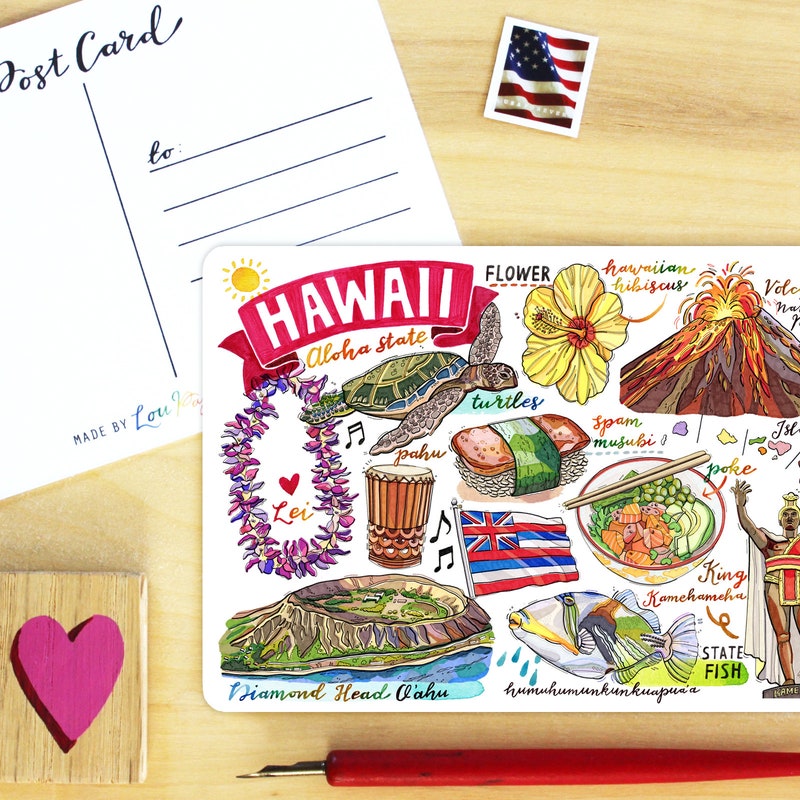 Post Card
to:
MADE BY Lou
HAWAII
Aloha state
FLOWER
hawaiian
hibiscus
turtles
pahu
spam
musubi
poke
Lei
King
Kamehameha
STATE
FISH
Diamond Head O'ahu
humuhumunkunkuapua'a